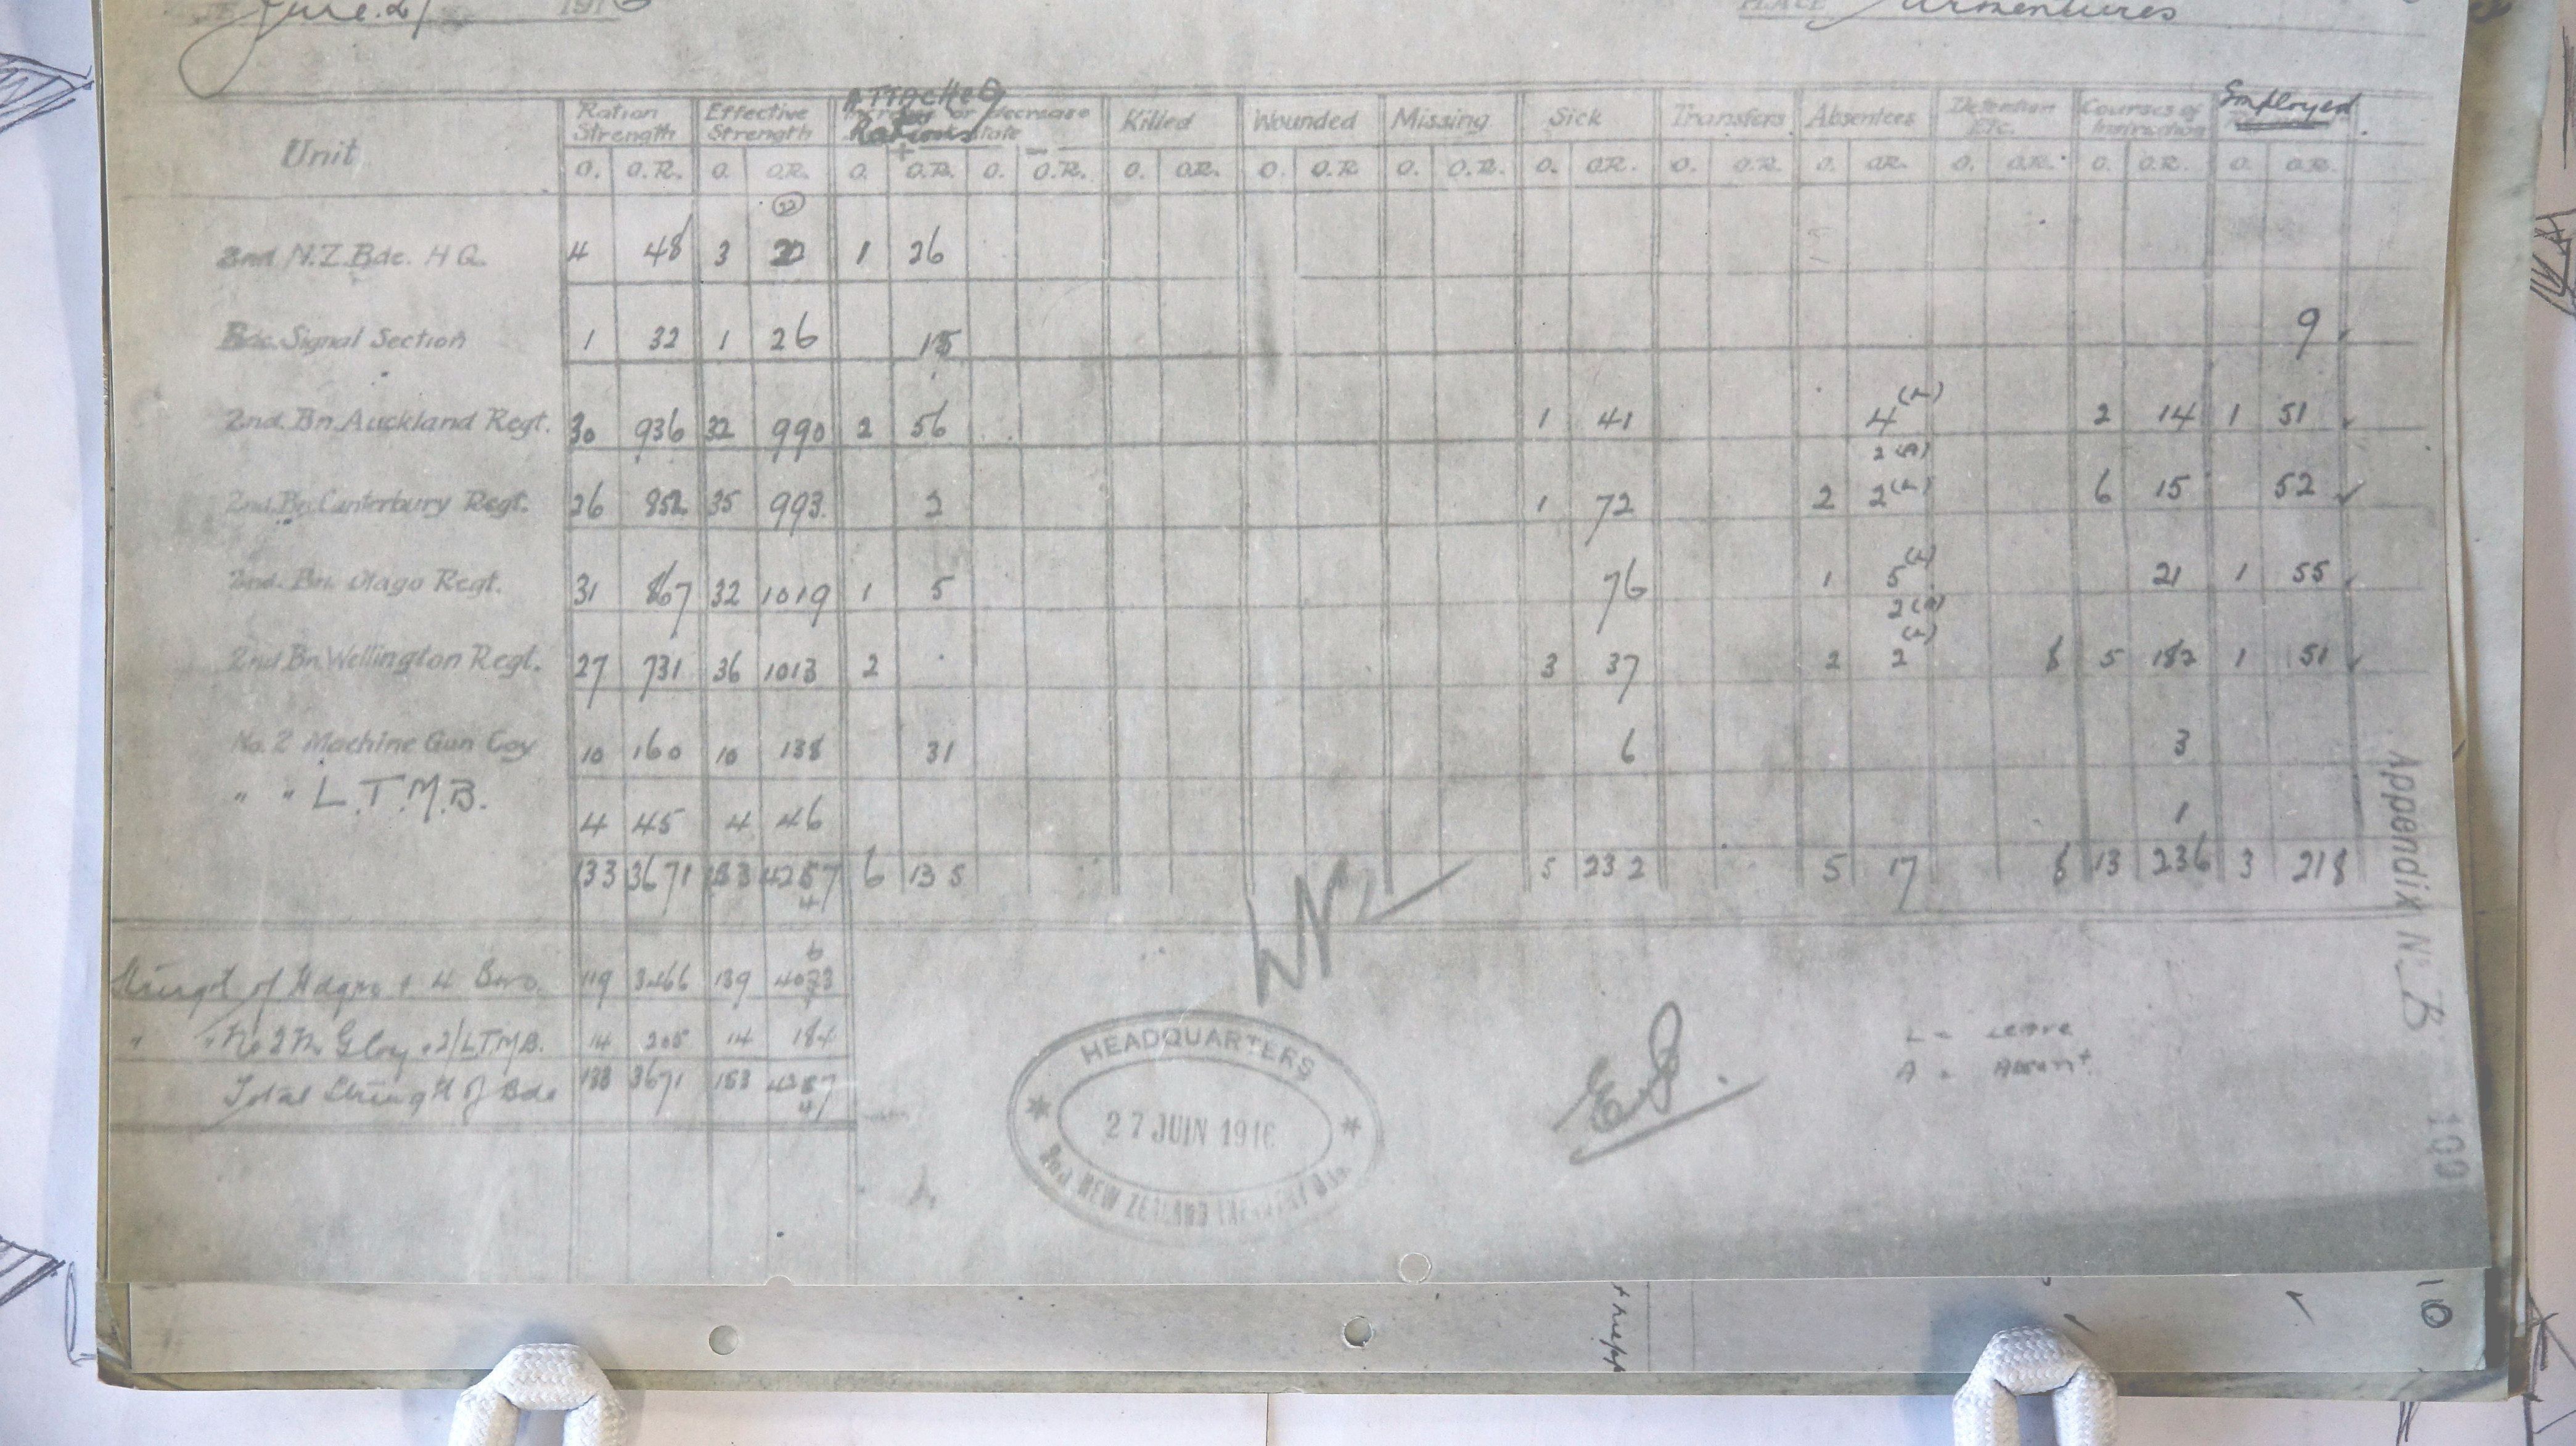 June 27 1916 PLACE Armentieres
Unit Ration Strength Effective Strength Attached for Rations Killed Wounded Missing Sick Transfers Absentees Detention Etc. Courses of Instruction Employed
+ -
O. O.R. O. O.R. O. O.R. O. O.R. O. O.R. O. O.R. O. O.R. O. O.R. O. O.R. O. O.R. O. O.R. O. O.R. O. O.R.
22
2nd N.Z. Bde. H Q. 4 48 3 22 1 26
Bde. Signal Section 1 32 1 26 15 9
2nd. Bn. Auckland Regt. 30 936 32 990 2 56 1 41 4 (L) 2 14 1 51
2 (A)
2nd. Bn. Canterbury Regt. 26 852 35 993 2 1 72 2 2 (L) 6 15 52
2nd. Bn. Otago Regt. 31 867 32 1019 1 5 76 1 5 (L) 21 1 55
2 (A)
2nd. Bn. Wellington Regt. 27 731 36 1013 2 3 37 2 2 (L) 8 5 182 1 51
No. 2 Machine Gun Coy 10 160 10 138 31 6 3
" " L.T.M.B. 4 45 4 46 1
133 3671 153 4257 6 135 5 232 5 17 8 13 236 3 218
4
Strengt of Hdqrs & 4 Bns. 119 3466 139
" " No 2 M. G Coy & 2/L.T.M.B. 14 205 14 184
Total Strength of Bde 133 3671 153 4257
4
L = Leave
A = Absent
HEADQUARTERS
27 JUIN 1916
2nd NEW ZEALAND INFANTRY Bde.
Appendix No. B
100
10